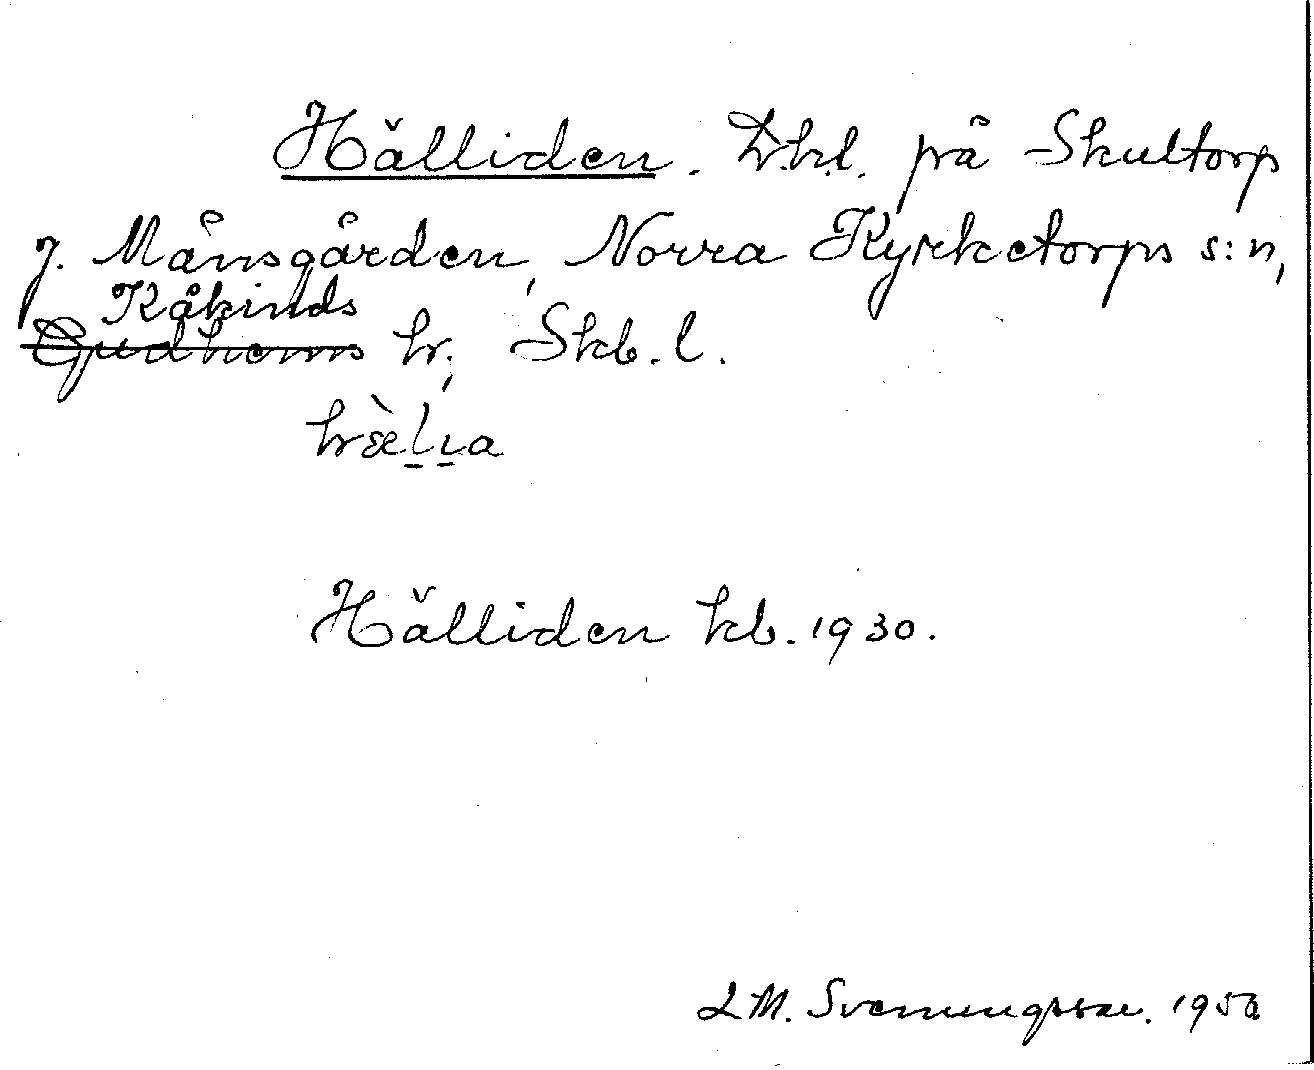 Hälliden. D.h.l. på Skultorp
7. Månsgården, Norra Kyrketorps s:n,
Kåkinds
Gudhems hr, Skb. l.
Hälliden kb. 1930.
L M. Svenungsson. 1950